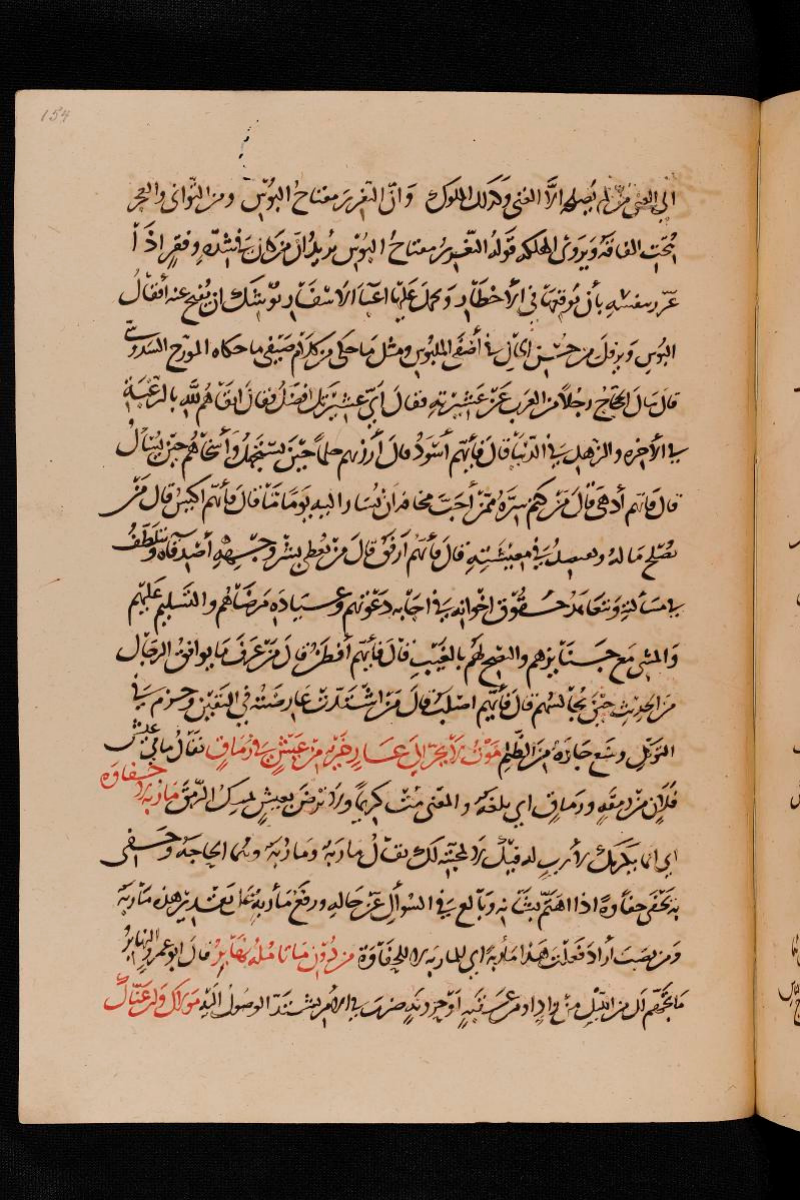 154
الى الغنى من لم يصلحه الا الغنى وكذلك الملوك وان التغرير مفتاح البؤس ومن التوانى والعجز
نتجت الفاقة ويروى الهلكة قوله التغرير مفتاح البؤس يريد ان من كان فى شدة وفقر اذا
غرر بنفسه بأن يوقعها فى الأخطار ويحمل عليها اعباء الاسفار يوشك ان يفتح عنه أقفال
البؤس ويرفل من حسن الحال فى أضفى الملبوس ومثل ما حكى من كلام صيفى ما حكاه المؤرج السدوسى
قال سال الحجاج رجلا من العرب عن عشيرته فقال اى عشيرتك افضل فقال اتقاهم لله بالرغبة
فى الآخرة والزهد فى الدنيا قال فأيهم أسود قال أرزنهم حلما حين يستجهل وأسخاهم حين يسأل
قال فأيهم أدهى قال من كتم سره ممن أحب مخافة ان يشار اليه يوما ما قال فأيهم اكيس قال من
يصلح ماله ويقتصد فى معيشته قال فأيهم ارفق قال من يعطى بشر وجهه أصدقاه ويتلطف
فى مسألته ويتعاهد حقوق اخوانه فى اجابة دعوتهم وعيادة مرضاهم والتسليم عليهم
والمشى مع جنايزهم والنصح لهم بالغيب قال فأيهم أفطن قال من عرف ما يوافق الرجال
من الحديث حين يجالسهم قال فأيهم اصلب قال من اشتدت عارضته فى اليقين وحزم فى
التوكل ومنع جاره من الظلم موت لا يجر الى عار خير من عيش فى رماق يقال ما فى عيش
فلان رمقة ورماق اى بلغة والمعنى مت كريما ولا ترض بعيش يمسك الرمق مأربة لا حفاوة
اى انما يكرمك لأرب له فيك لا لمحبته لك يقال مأربة ومأربة وهما الحاجة وحفى
به يحفى حفاوة اذا اهتم بشأنه وبالغ فى السؤال عن حاله ورفع مأربة على تقدير هذه مأربة
ومن نصب أراد فعلت هذا مأربة اى للمأربة لا للحفاوة من دون ما تأمله نهابر قال ابو عمرو النهابر
ما تجهم لك من الليل من واد او عقبة او حزونة يضرب فى الامر يشتد الوصول اليه مولاك وان عناك